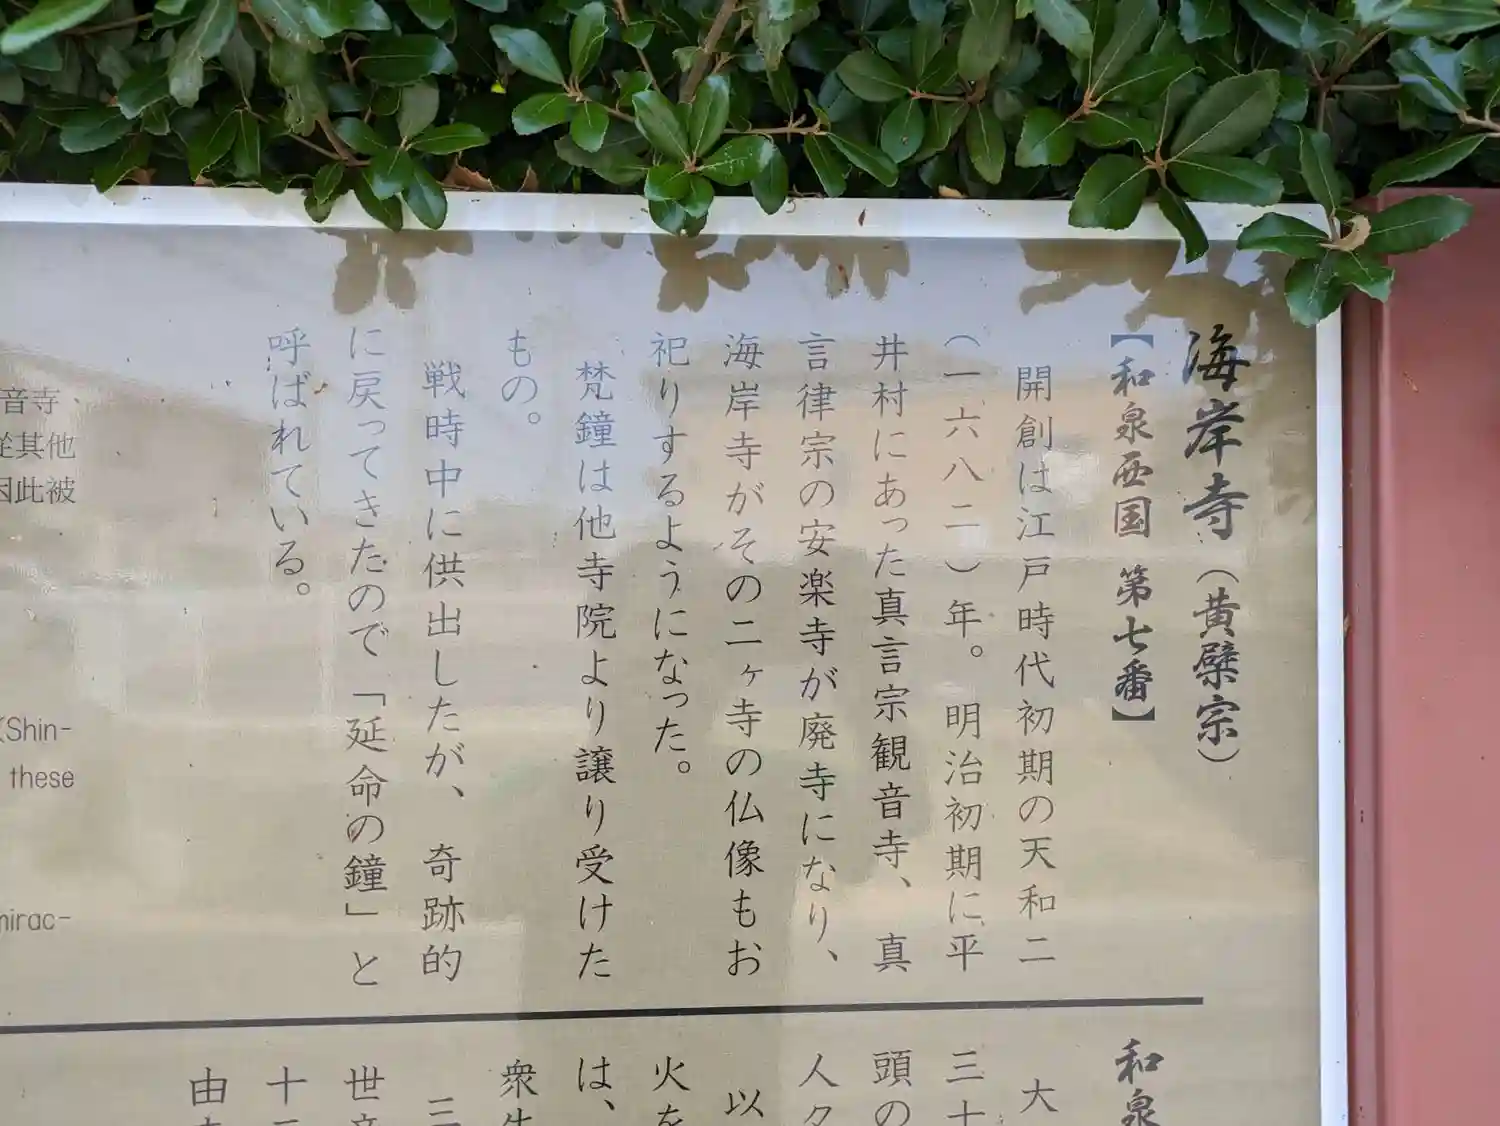 海岸寺（黄檗宗）
【和泉西国 第七番】
開創は江戸時代初期の天和二
（一六八二）年。明治初期に平
井村にあった真言宗観音寺、真
言律宗の安楽寺が廃寺になり、
海岸寺がその二ヶ寺の仏像もお
祀りするようになった。
梵鐘は他寺院より譲り受けた
もの。
戦時中に供出したが、奇跡的
に戻ってきたので「延命の鐘」と
呼ばれている。
音寺、
從其他
因此被
(Shin-
these
mirac-
和泉
大
三十
頭の
人々
以
火を
は、
衆生
三
世音
十三
由